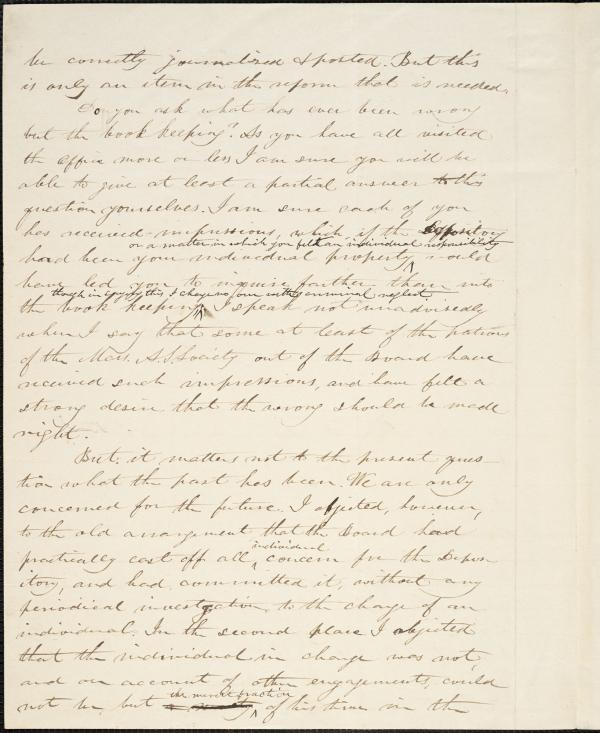 be correctly journalized & posted. But this
is only an item in the reform that is needed.
Do you ask what has ever been wrong
but the book keeping? As you have all visited
the office more or less I am sure you will be
able to give at least a partial answer to this
question yourselves. I am sure each of you
has received impressions, which, if the depository
or a matter in which you felt an individual responsibility
had been your individual property would
have led you to inquire farther than into
though in saying this I charge no one with criminal neglect.
the book keeping. I speak not unadvisedly
when I say that some at least of the patrons
of the Mass. A. S. Society out of the Board have
received such impressions, and have felt a
strong desire that the wrong should be made
right.
But it matters not to the present ques-
tion what the past has been. We are only
concerned for the future. I objected, however,
to the old arrangement that the Board had
individual
practically cast off all concern for the Depos-
itory, and had committed it, without any
periodical investigation, to the charge of an
individual. In the second place I objected
that the individual in charge was not,
and on account of other engagements, could
the merest fraction
not be, but of his time in the